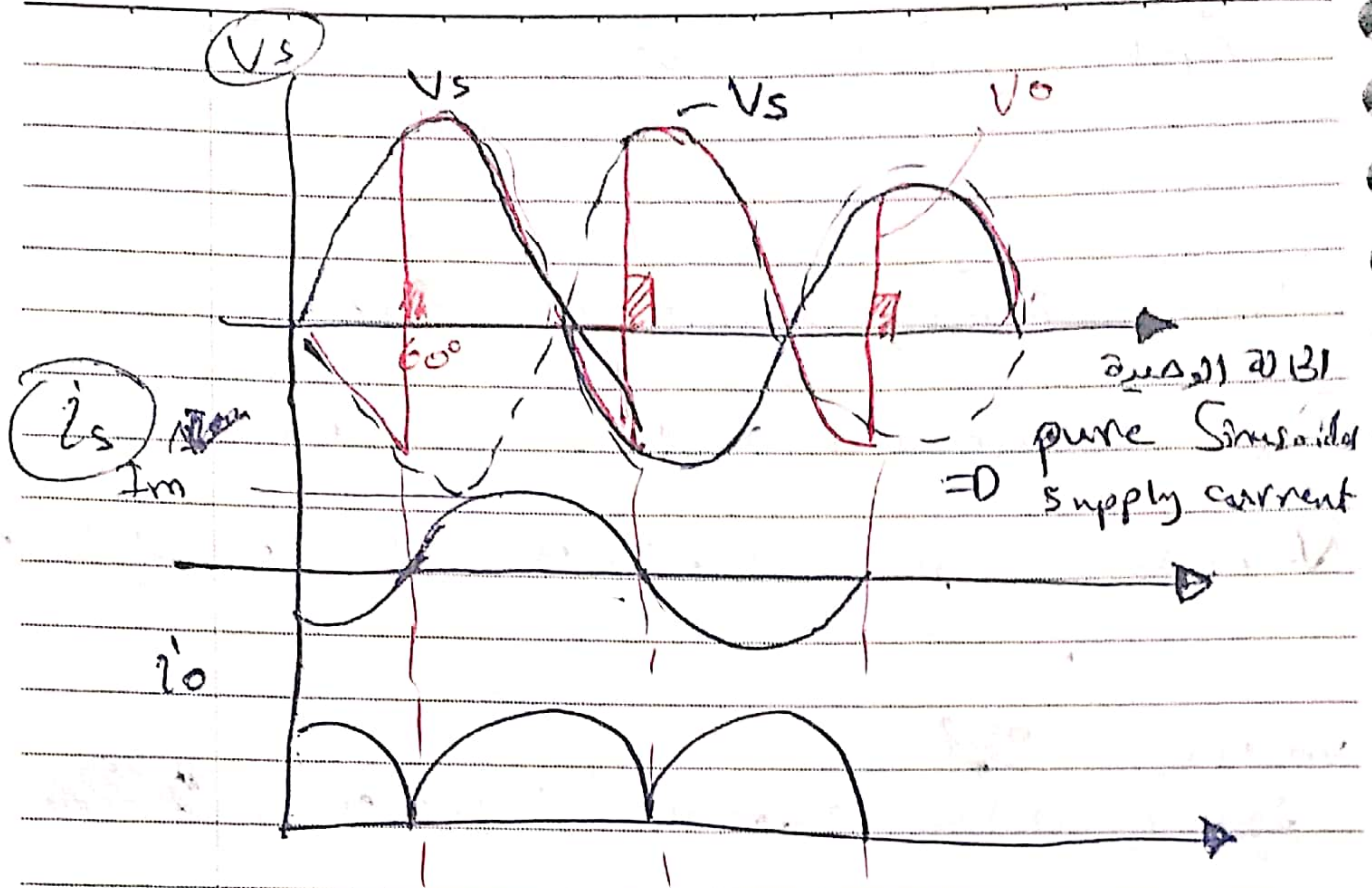 Vs
Vs
-Vs
Vo
60°
is
Im
الحالة الوحيدة
pure Sinusoidal
=D supply current
io